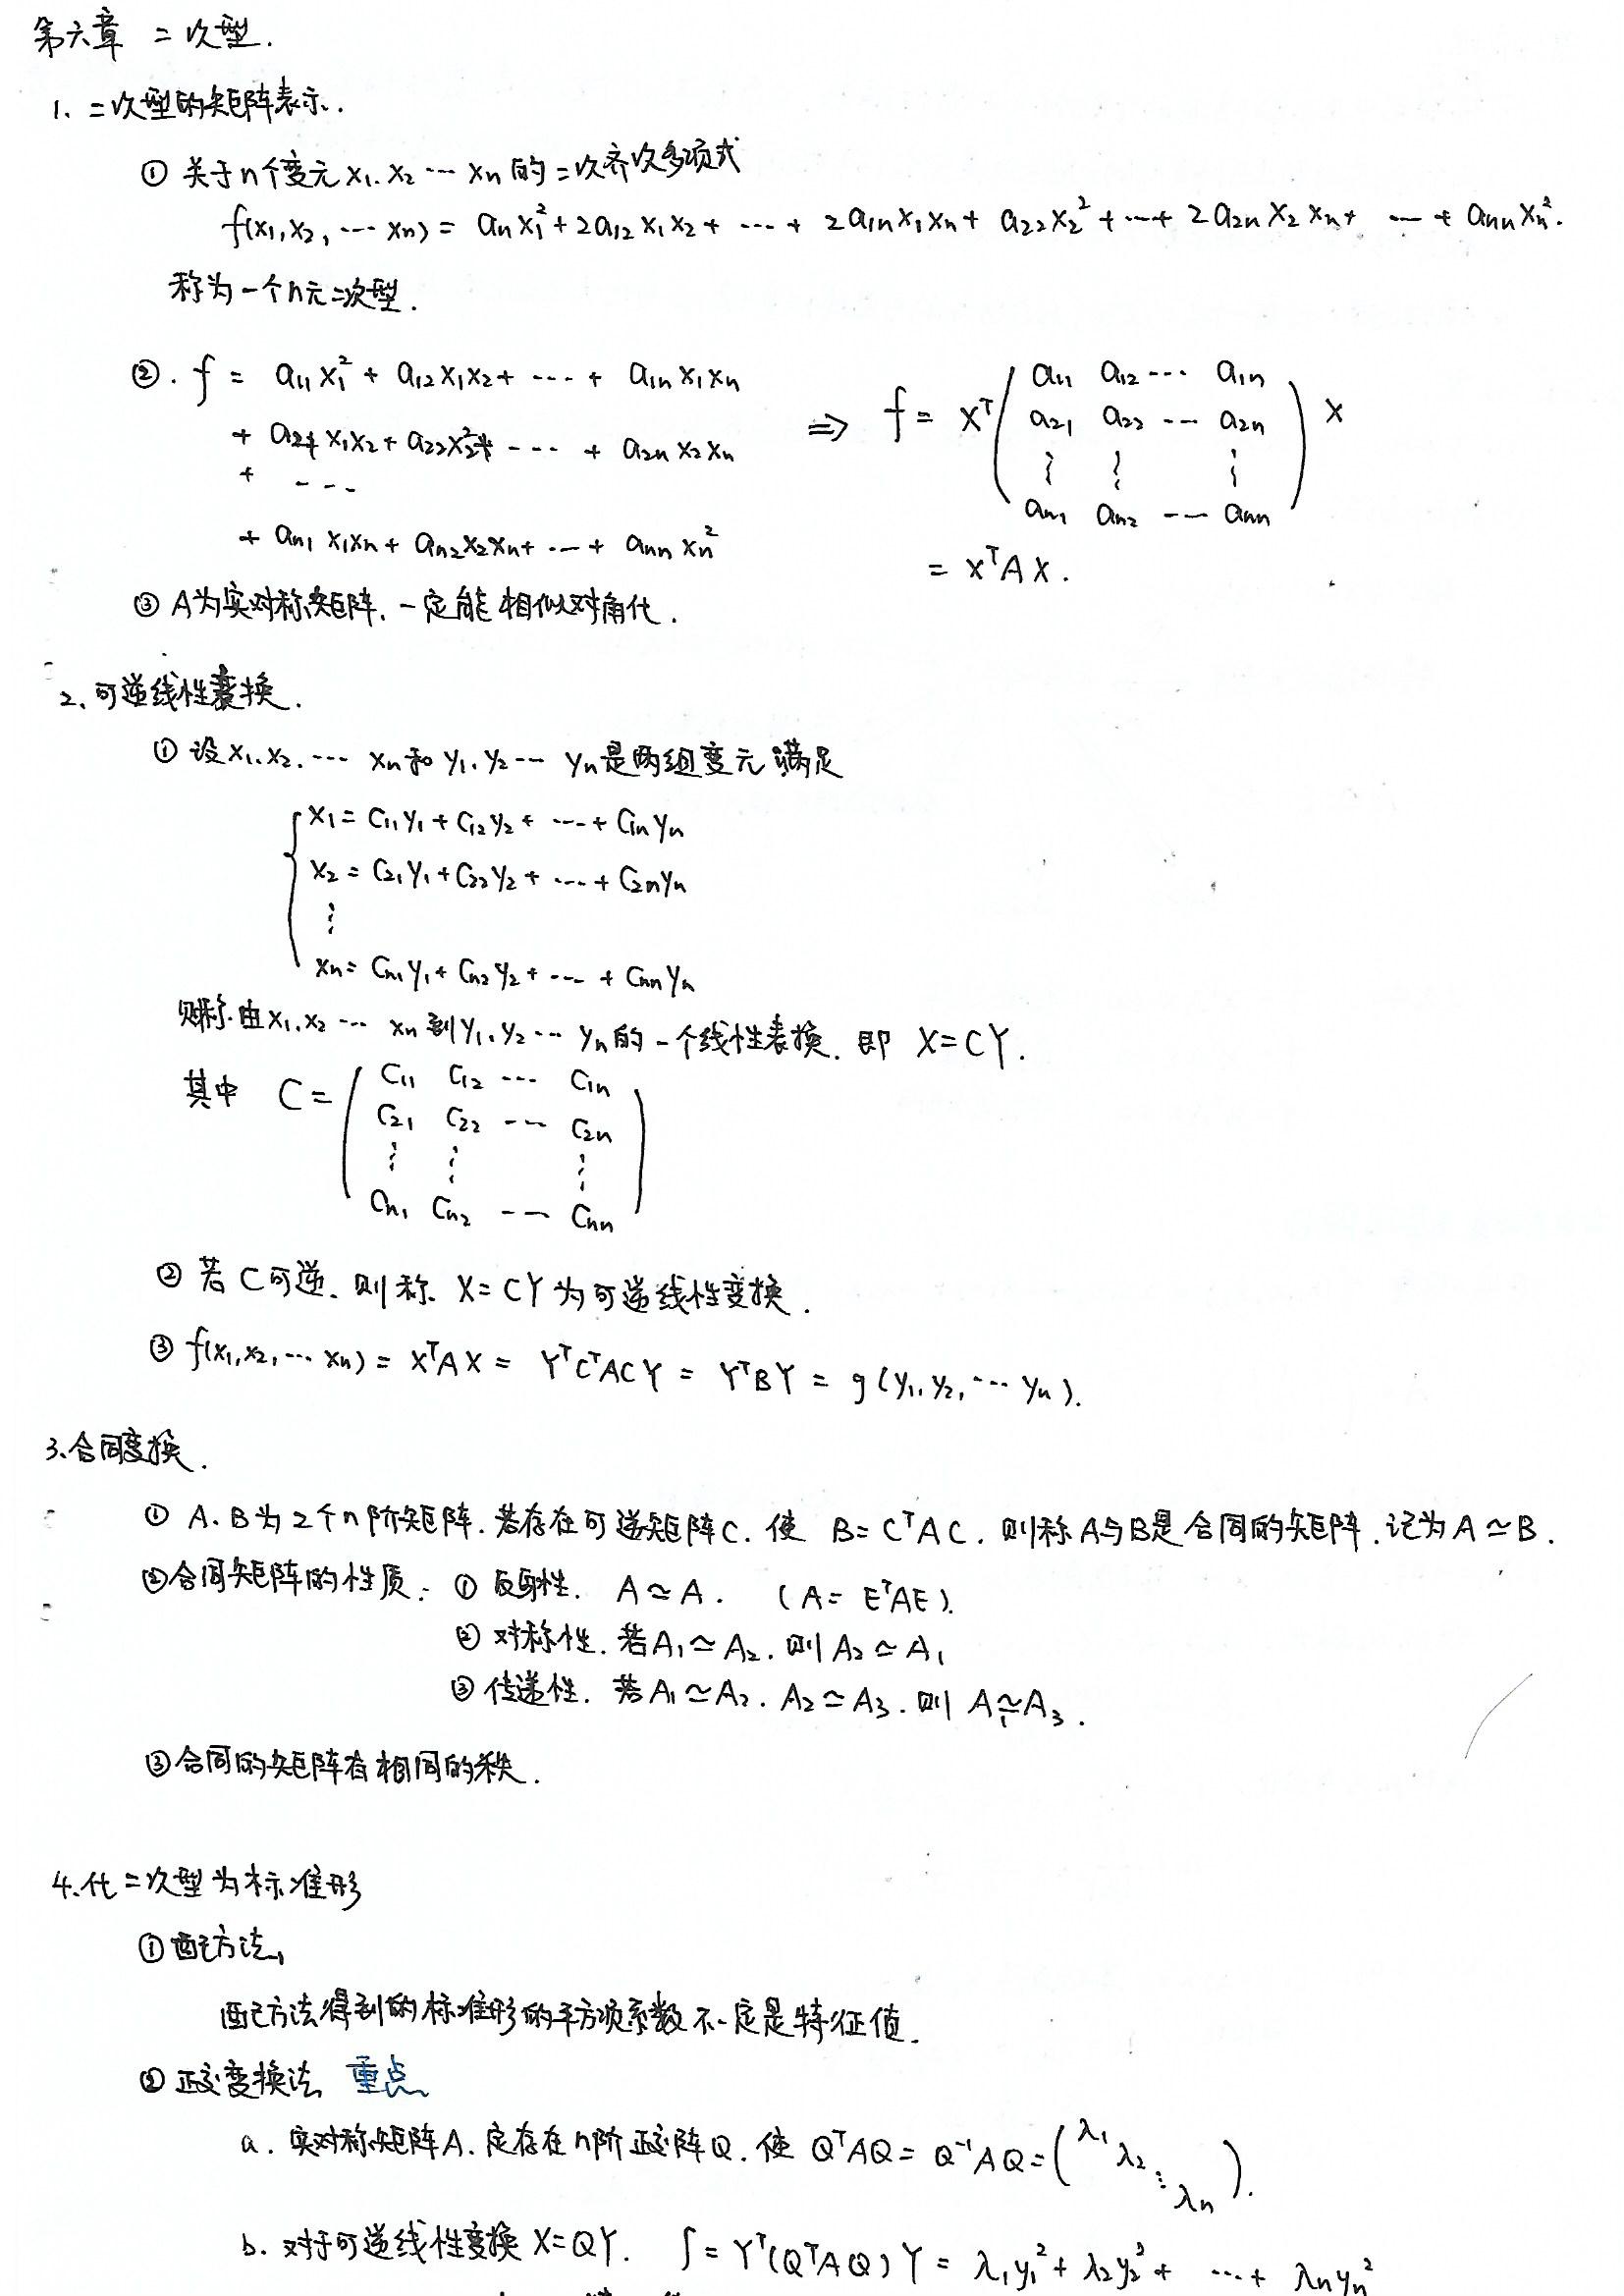 第六章 二次型.
1、二次型的矩阵表示.
① 关于n个变元 x₁. x₂ … xₙ 的二次齐次多项式
f(x₁,x₂, … xₙ) = a₁₁x₁² + 2a₁₂x₁x₂ + … + 2a₁ₙx₁xₙ + a₂₂x₂² + … + 2a₂ₙx₂xₙ + … + aₙₙxₙ².
称为一个n元二次型.
②. f = a₁₁x₁² + a₁₂x₁x₂ + … + a₁ₙx₁xₙ
+ a₂₁x₁x₂ + a₂₂x₂² + … + a₂ₙx₂xₙ
+ …
+ aₙ₁x₁xₙ + aₙ₂x₂xₙ + … + aₙₙxₙ²
⇒ f = xᵀ ( a₁₁ a₁₂ … a₁ₙ
a₂₁ a₂₂ … a₂ₙ
⋮ ⋮ ⋮
aₙ₁ aₙ₂ … aₙₙ ) x
= xᵀAx.
③ A为实对称矩阵. 一定能相似对角化.
2、可逆线性变换.
① 设x₁.x₂. … xₙ和 y₁.y₂ … yₙ是两组变元满足
{ x₁ = c₁₁y₁ + c₁₂y₂ + … + c₁ₙyₙ
x₂ = c₂₁y₁ + c₂₂y₂ + … + c₂ₙyₙ
⋮
xₙ = cₙ₁y₁ + cₙ₂y₂ + … + cₙₙyₙ
则称由x₁.x₂ … xₙ到y₁.y₂ … yₙ的一个线性表换. 即 X=CY.
其中 C = ( c₁₁ c₁₂ … c₁ₙ
c₂₁ c₂₂ … c₂ₙ
⋮ ⋮ ⋮
cₙ₁ cₙ₂ … cₙₙ )
② 若C可逆、则称. X=CY为可逆线性变换.
③ f(x₁,x₂, … xₙ) = XᵀAX = YᵀCᵀACY = YᵀBY = g(y₁,y₂, … yₙ).
3、合同变换.
① A.B为2个n阶矩阵. 若存在可逆矩阵C. 使 B=CᵀAC. 则称A与B是合同的矩阵. 记为A≃B.
②合同矩阵的性质: ① 反身性. A≃A. (A=EᵀAE).
② 对称性. 若A₁≃A₂. 则A₂≃A₁
③ 传递性. 若A₁≃A₂. A₂≃A₃. 则 A₁≃A₃.
③合同的矩阵有相同的秩.
4、化二次型为标准形
①配方法
配方法得到的标准形的平方项系数不一定是特征值.
② 正交变换法 重点
a. 实对称矩阵A. 定存在n阶正交阵Q. 使 QᵀAQ = Q⁻¹AQ = ( λ₁ λ₂ ⋱ λₙ ).
b. 对于可逆线性变换X=QY. f = Yᵀ(QᵀAQ)Y = λ₁y₁² + λ₂y₂² + … + λₙyₙ²